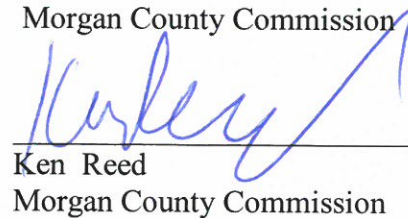 Morgan County Commission
Ken Reed
Morgan County Commission